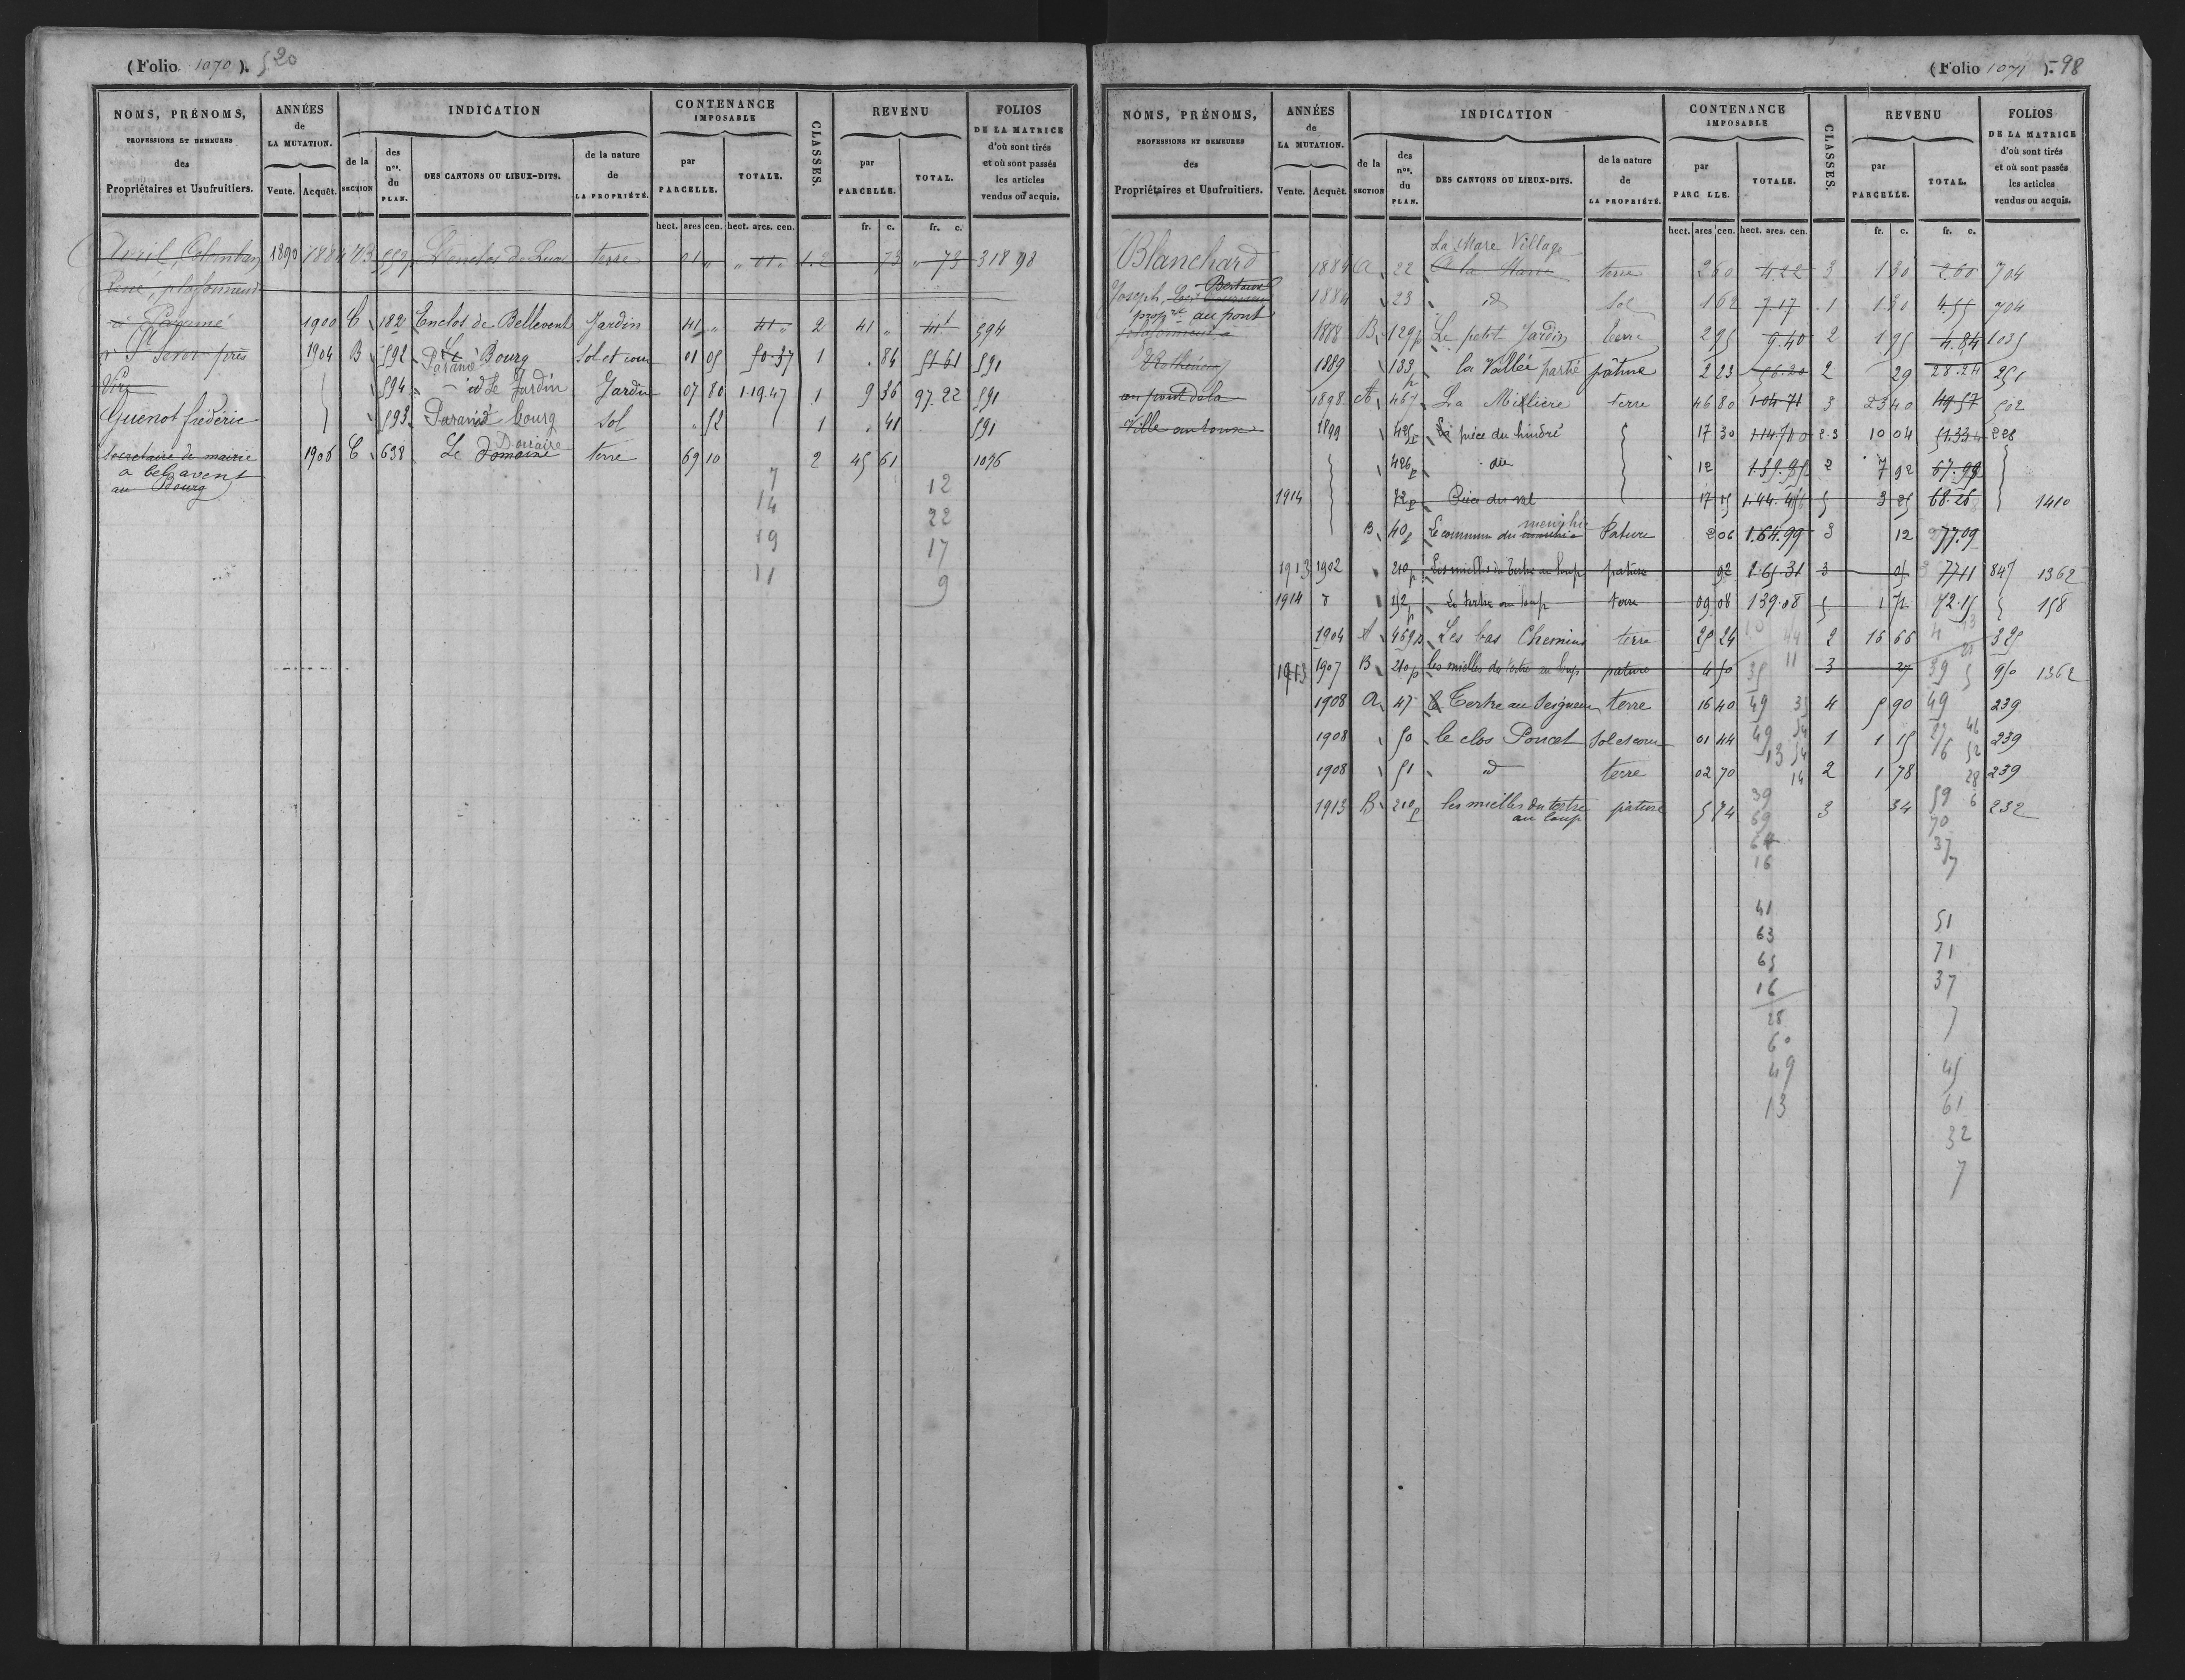 (Folio 1070). 520
NOMS, PRÉNOMS, PROFESSIONS ET DEMEURES des Propriétaires et Usufruitiers.
ANNÉES de LA MUTATION. Vente. Acquêt.
INDICATION de la SECTION des nos. du PLAN. DES CANTONS OU LIEUX-DITS. de la nature de LA PROPRIÉTÉ.
CONTENANCE IMPOSABLE par PARCELLE. TOTALE.
CLASSES.
REVENU par PARCELLE. TOTAL.
FOLIOS DE LA MATRICE d'où sont tirés et où sont passés les articles vendus ou acquis.
hect. ares cen. hect. ares. cen. fr. c. fr. c.
1890 1884 B 559 terre 01 " " 01 " 1.2 73 " 73 318 98
René, plafonneur
à Paramé 1900 C 182 Enclos de Bellevent Jardin 41 " 41 " 2 41 " 594
à St Servan près 1904 B 592 Le Bourg Paramé Sol et cour 01 05 50.37 1 . 84 51 61 591
594 id Le Jardin Jardin 07 80 1.19.47 1 9 36 97.22 591
Guenot frédéric 593 Paramé bourg Sol . 52 1 . 41 591
Secretaire de mairie 1906 C 638 Le Domaine Douaire terre 69 10 2 45 61 1076
a belzavent
au Bourg
7 12
14 22
19 17
11 9
(Folio 1071). 98
NOMS, PRÉNOMS, PROFESSIONS ET DEMEURES des Propriétaires et Usufruitiers.
ANNÉES de LA MUTATION. Vente. Acquêt.
INDICATION de la SECTION des nos. du PLAN. DES CANTONS OU LIEUX-DITS. de la nature de LA PROPRIÉTÉ.
CONTENANCE IMPOSABLE par PARC LLE. TOTALE.
CLASSES.
REVENU par PARCELLE. TOTAL.
FOLIOS DE LA MATRICE d'où sont tirés et où sont passés les articles vendus ou acquis.
hect. ares cen. hect. ares. cen. fr. c. fr. c.
La Mare Village
Blanchard 1884 A 22 A la Mare terre 2 60 4.22 3 1 30 2.60 704
Joseph, 1884 23 id Sol 1 62 7.17 1 1 30 4.55 704
propre au pont
1888 B 129p Le petit Jardin terre 2 95 9.40 2 1 95 4.84 1035
1889 133 la Vallée partie pâture 2 23 56.20 2 29 28.24 251
au pont de la 1898 A 467 La Millière terre 46 80 1.04.71 3 23 40 49.57 502
Ville 1899 425p La pièce du hindré 17 30 2.3 10 04 228
426p dito 12 1.39.95 2 7 92
1914 72p Pièce du val 17 15 5 3 25 68.26 1410
B 40p Le commun du menhir Pature 2 06 1.64.99 3 12 77.09
1913 1902 210p Les mielles du Tertre au loup pature 92 1.65.31 3 05 77 11 847 1362
1914 d 152p Le tertre au loup terre 09 08 139.08 5 1 72 72.15 158
1904 A 469p Les bas Chemins terre 25 24 2 16 66 325
1913 1907 B 210p les mielles du tertre au loup pature 4 50 3 27 950 1362
1908 A 47 Le Tertre au Seigneur terre 16 40 4 5 90 239
1908 50 le clos Poncel Sol et cour 01 44 1 1 15 239
1908 51 id terre 02 70 2 1 78 239
1913 B 210p les mielles du tertre au loup pâture 5 74 3 34 232
39 59 6
69 70
64 37
16 7
41 51
63 71
65 37
16 7
28
60 45
49 61
13 32
7